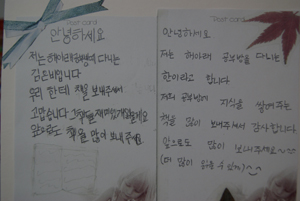 Post card
안녕하세요
저는 해아래공부방에 다니는
김은비입니다
우리 한테 책을 보내주셔서
고맙습니다 그책을 재미있게읽을게요
앞으로도 책을 많이 보내주세요
Post card
안녕하세요
저는 해아래 공부방을 다니는
한아라고 합니다
저희 공부방에 지식을 쌓게해주는
책을 많이 보내주셔서 감사합니다
앞으로도 많이 보내주세요~~
(더 많이 읽을 수 있게)~~